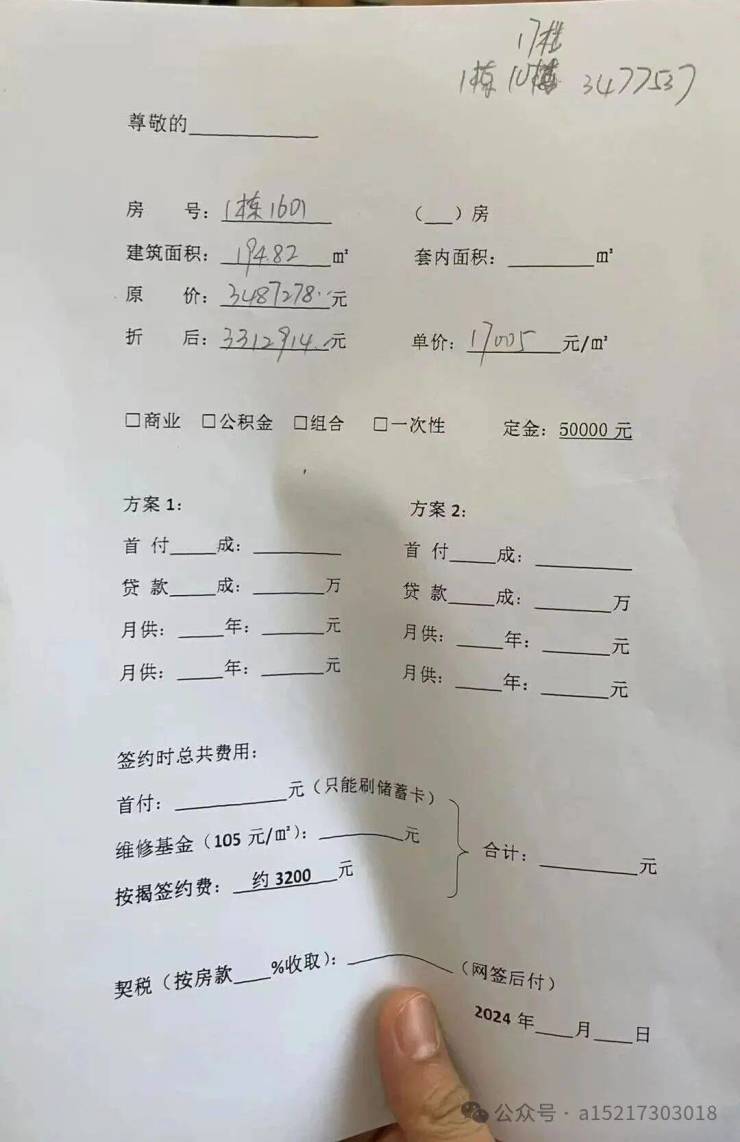 17栋
1栋10楼 3477537
尊敬的____________
房 号：1栋1601 （___）房
建筑面积：194.82 ㎡ 套内面积：________㎡
原 价：3487278.元
折 后：3312914.元 单价：17005 元/㎡
□商业 □公积金 □组合 □一次性 定金：50000 元
方案 1： 方案 2：
首 付____成：________ 首 付____成：________
贷 款____成：________万 贷 款____成：________万
月供：____年：______元 月供：____年：______元
月供：____年：______元 月供：____年：______元
签约时总共费用：
首付：__________元（只能刷储蓄卡）
维修基金（105 元/㎡）：________元 合计：_________元
按揭签约费：约 3200 元
契税（按房款___%收取）：_________（网签后付）
2024 年____月____日
公众号 · a15217303018